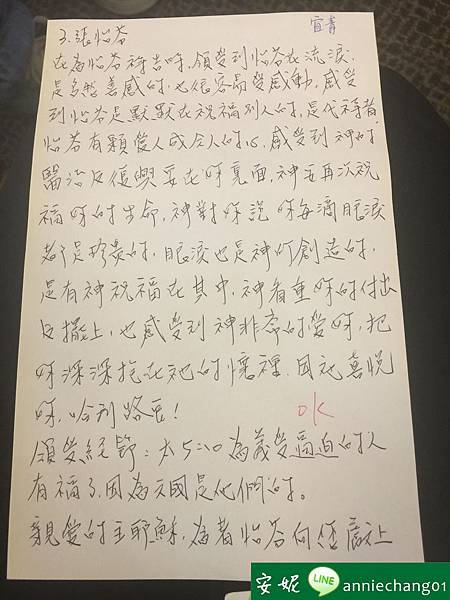 宜青
3.張怡芬
在為怡芬禱告時,領受到怡芬在流淚,
是多愁善感的,也很容易受感動,感受
到怡芬是默默在祝福別人的,是代禱者
怡芬有顆愛人成全人的心,感受到神的
醫治及復興要在妳裏面,神要再次祝
福妳的生命,神對妳說 妳每滴眼淚
都是珍貴的,眼淚也是神所創造的,
是有神祝福在其中,神看重妳的付出
及擺上,也感受到神非常的愛妳,把
妳深深抱在祂的懷裡,因祂喜悅
妳,哈利路亞!
ok
領受經節:太5:10 為義受逼迫的人
有福了,因為天國是他們的。
親愛的主耶穌,為著怡芬向您獻上
安妮 LINE anniechang01